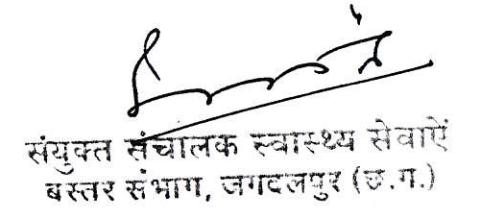 संयुक्त संचालक स्वास्थ्य सेवाऐं
बस्तर संभाग, जगदलपुर (छ.ग.)